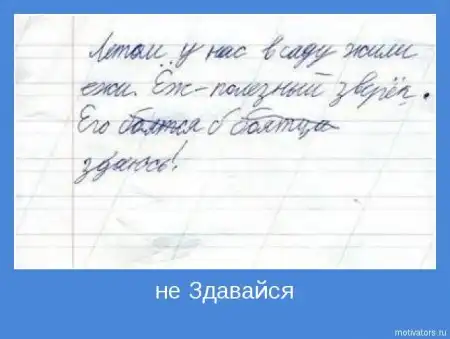 Летом у нас в саду жили
ежи. Ёж - полезный зверёк.
Его боятся б боятца
здаюсь!
не Здавайся
motivators.ru